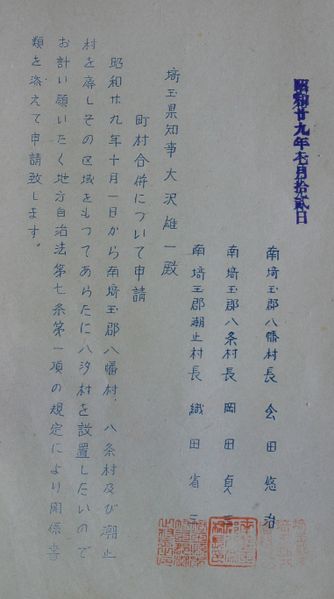 昭和廿九年月拾貳日
南埼玉郡八幡村長 会田悠治
南埼玉郡八条村長 岡田貞
南埼玉郡潮止村長 織田省三
埼玉県知事 大沢雄一殿
町村合併について申請
昭和廿九年十月一日から南埼玉郡八幡村、八条村及び潮止
村を廃しその区域をもつてあらたに八汐村を設置したいので
お計い願いたく地方自治法第七条第一項の規定により関係書
類を添えて申請致します。